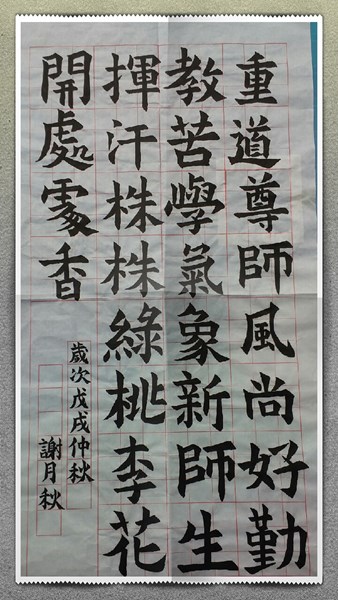 重道尊師風尚好勤
教苦學氣象新師生
揮汗株株綠桃李花
開處處香
歲次戊戌仲秋
謝月秋